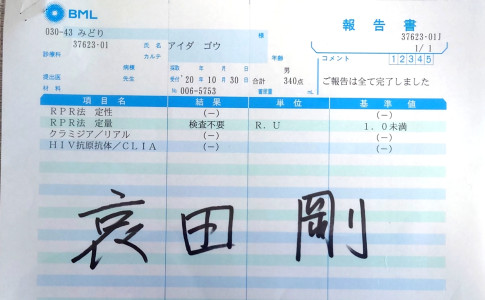 BML
報告書
030-43 みどり 様 37623-01J
37623-01 氏名 アイダ ゴウ 1/ 1
診療科 カルテ 年齢 コメント 12345
病棟 採取 年 月 日 男
提出医 先生 受付 '20年10月30日 合計 340点 ご報告は全て完了しました
材料 No 006-5753 蓄尿量 mL
項目名 結果 単位 基準値
RPR法 定性 (−) (−)
RPR法 定量 検査不要 R.U 1.0未満
クラミジア/リアル (−) (−)
HIV抗原抗体/CLIA (−) (−)
哀田 剛